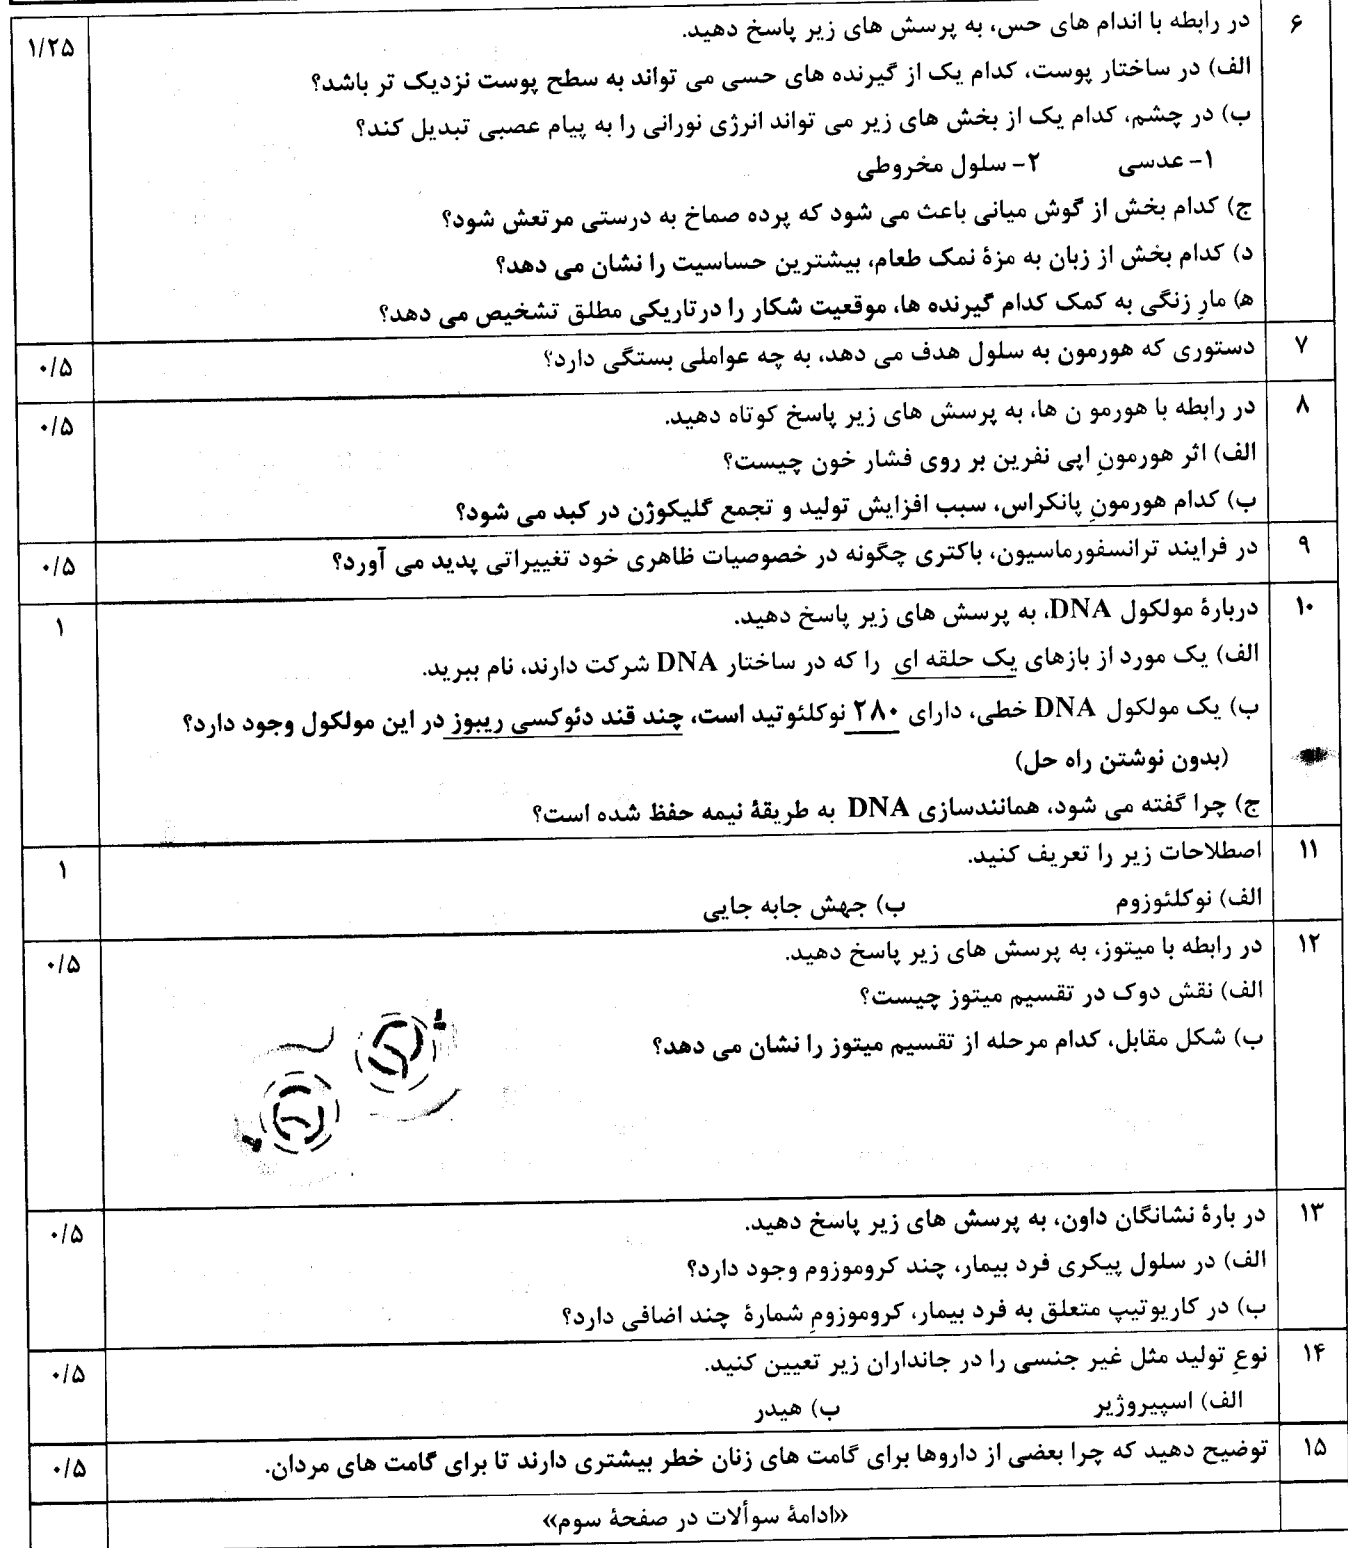 ۶
در رابطه با اندام های حس، به پرسش های زیر پاسخ دهید.
۱/۲۵
الف) در ساختار پوست، کدام یک از گیرنده های حسی می تواند به سطح پوست نزدیک تر باشد؟
ب) در چشم، کدام یک از بخش های زیر می تواند انرژی نورانی را به پیام عصبی تبدیل کند؟
۱- عدسی ۲- سلول مخروطی
ج) کدام بخش از گوش میانی باعث می شود که پرده صماخ به درستی مرتعش شود؟
د) کدام بخش از زبان به مزۀ نمک طعام، بیشترین حساسیت را نشان می دهد؟
ه) مارِ زنگی به کمک کدام گیرنده ها، موقعیت شکار را درتاریکی مطلق تشخیص می دهد؟
۷
دستوری که هورمون به سلول هدف می دهد، به چه عواملی بستگی دارد؟
۰/۵
۸
در رابطه با هورمو ن ها، به پرسش های زیر پاسخ کوتاه دهید.
۰/۵
الف) اثر هورمونِ اپی نفرین بر روی فشار خون چیست؟
ب) کدام هورمونِ پانکراس، سبب افزایش تولید و تجمع گلیکوژن در کبد می شود؟
۹
در فرایند ترانسفورماسیون، باکتری چگونه در خصوصیات ظاهری خود تغییراتی پدید می آورد؟
۰/۵
۱۰
دربارۀ مولکول DNA، به پرسش های زیر پاسخ دهید.
۱
الف) یک مورد از بازهای یک حلقه ای را که در ساختار DNA شرکت دارند، نام ببرید.
ب) یک مولکول DNA خطی، دارای ۲۸۰ نوکلئوتید است، چند قند دئوکسی ریبوز در این مولکول وجود دارد؟
(بدون نوشتن راه حل)
ج) چرا گفته می شود، همانندسازی DNA به طریقۀ نیمه حفظ شده است؟
۱۱
اصطلاحات زیر را تعریف کنید.
۱
الف) نوکلئوزوم ب) جهش جابه جایی
۱۲
در رابطه با میتوز، به پرسش های زیر پاسخ دهید.
۰/۵
الف) نقش دوک در تقسیم میتوز چیست؟
ب) شکل مقابل، کدام مرحله از تقسیم میتوز را نشان می دهد؟
۱۳
در بارۀ نشانگان داون، به پرسش های زیر پاسخ دهید.
۰/۵
الف) در سلول پیکری فرد بیمار، چند کروموزوم وجود دارد؟
ب) در کاریوتیپ متعلق به فرد بیمار، کروموزومِ شمارۀ چند اضافی دارد؟
۱۴
نوعِ تولید مثل غیر جنسی را در جانداران زیر تعیین کنید.
۰/۵
الف) اسپیروژیر ب) هیدر
۱۵
توضیح دهید که چرا بعضی از داروها برای گامت های زنان خطر بیشتری دارند تا برای گامت های مردان.
۰/۵
«ادامۀ سوألات در صفحۀ سوم»